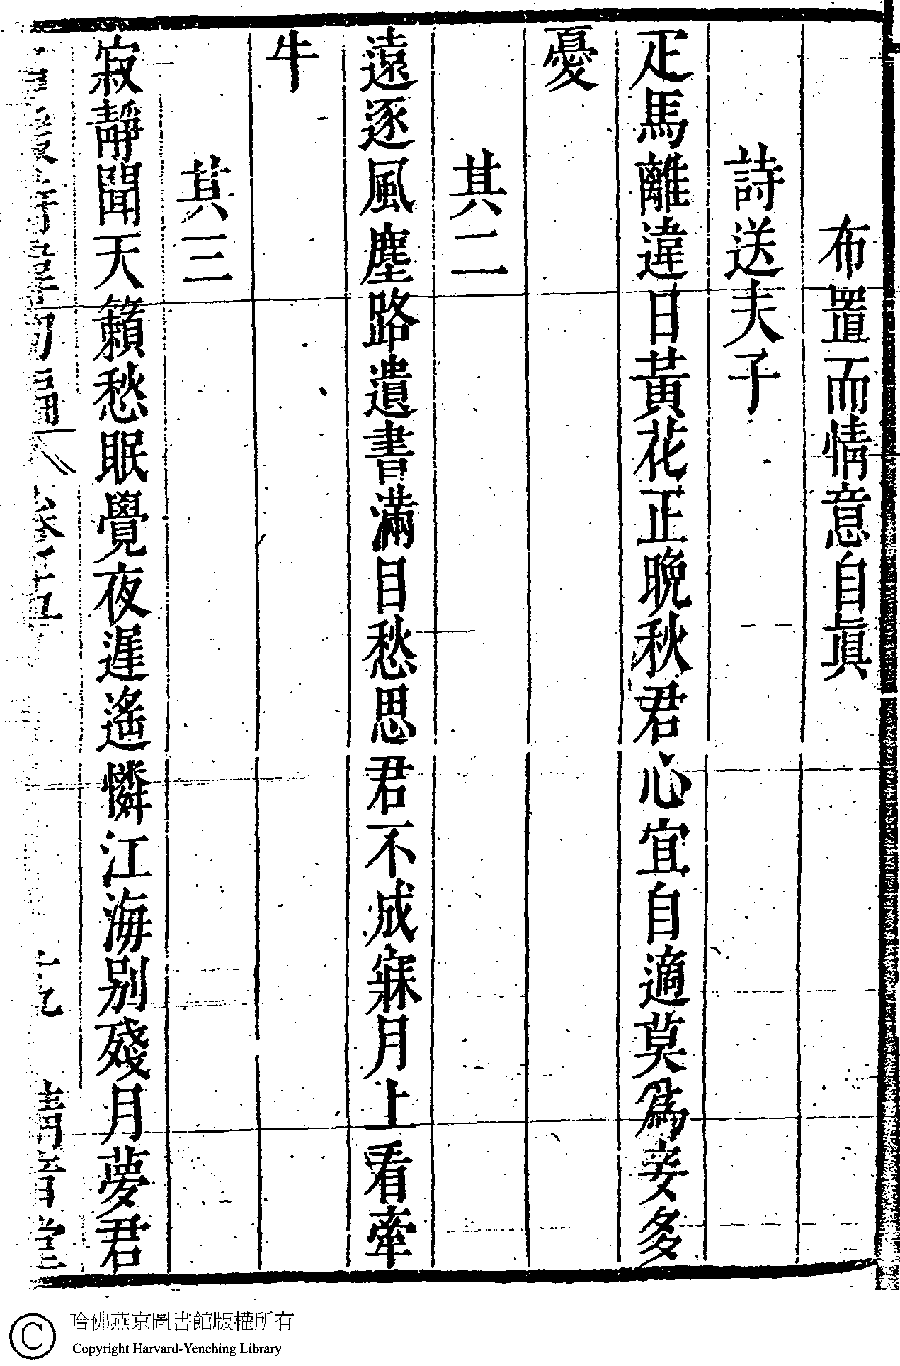 布置而情意自眞
詩送夫子
疋馬離違日黃花正晚秋君心宜自適莫爲妾多
憂
其二
遠逐風塵路遺書滿目愁思君不成寐月上看牽
牛
其三
寂靜聞天籟愁眠覺夜遲遙憐江海別殘月夢君
初編 卷五
清音堂
哈佛燕京圖書館版權所有
Copyright Harvard-Yenching Library